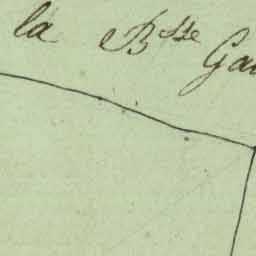 la Bsse Gau